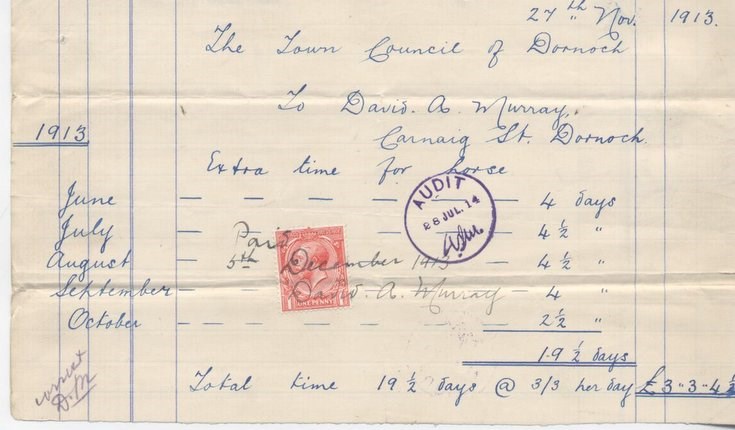 27th Nov. 1913.
The Town Council of Dornoch
To David. A. Murray,.
1913
Carnaig St. Dornoch.
Extra time for horse
June — — — — — — — 4 days
July — — — — — 4 ½ "
August — — — — 4 ½ "
September — — — — 4 "
October — — — — — — — 2 ½ "
19 ½ days
Total time 19 ½ days @ 3/3 per day £3"3"4½
AUDIT
28 JUL. 14
Paid
5th December 1913
David. A. Murray
1 ONE PENNY
correct
D.M